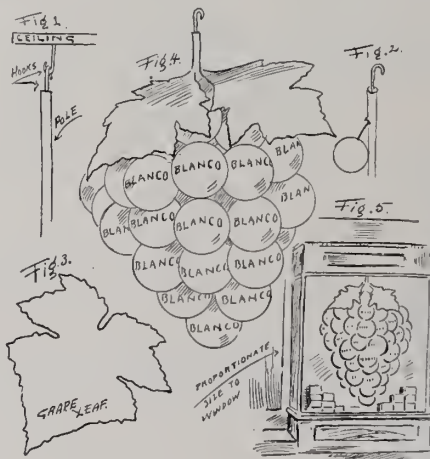 Fig 1.
CEILING
HOOKS
POLE
Fig. 4.
Fig. 2.
BLANCO
BLANCO
BLANCO
BLAN
BLAN
BLAN
BLANCO
BLANCO
BLANCO
BLANCO
BLANCO
BLANCO
BLANCO
BLANCO
BLANCO
Fig. 3.
GRAPE LEAF.
Fig. 5.
PROPORTIONATE
SIZE TO
WINDOW